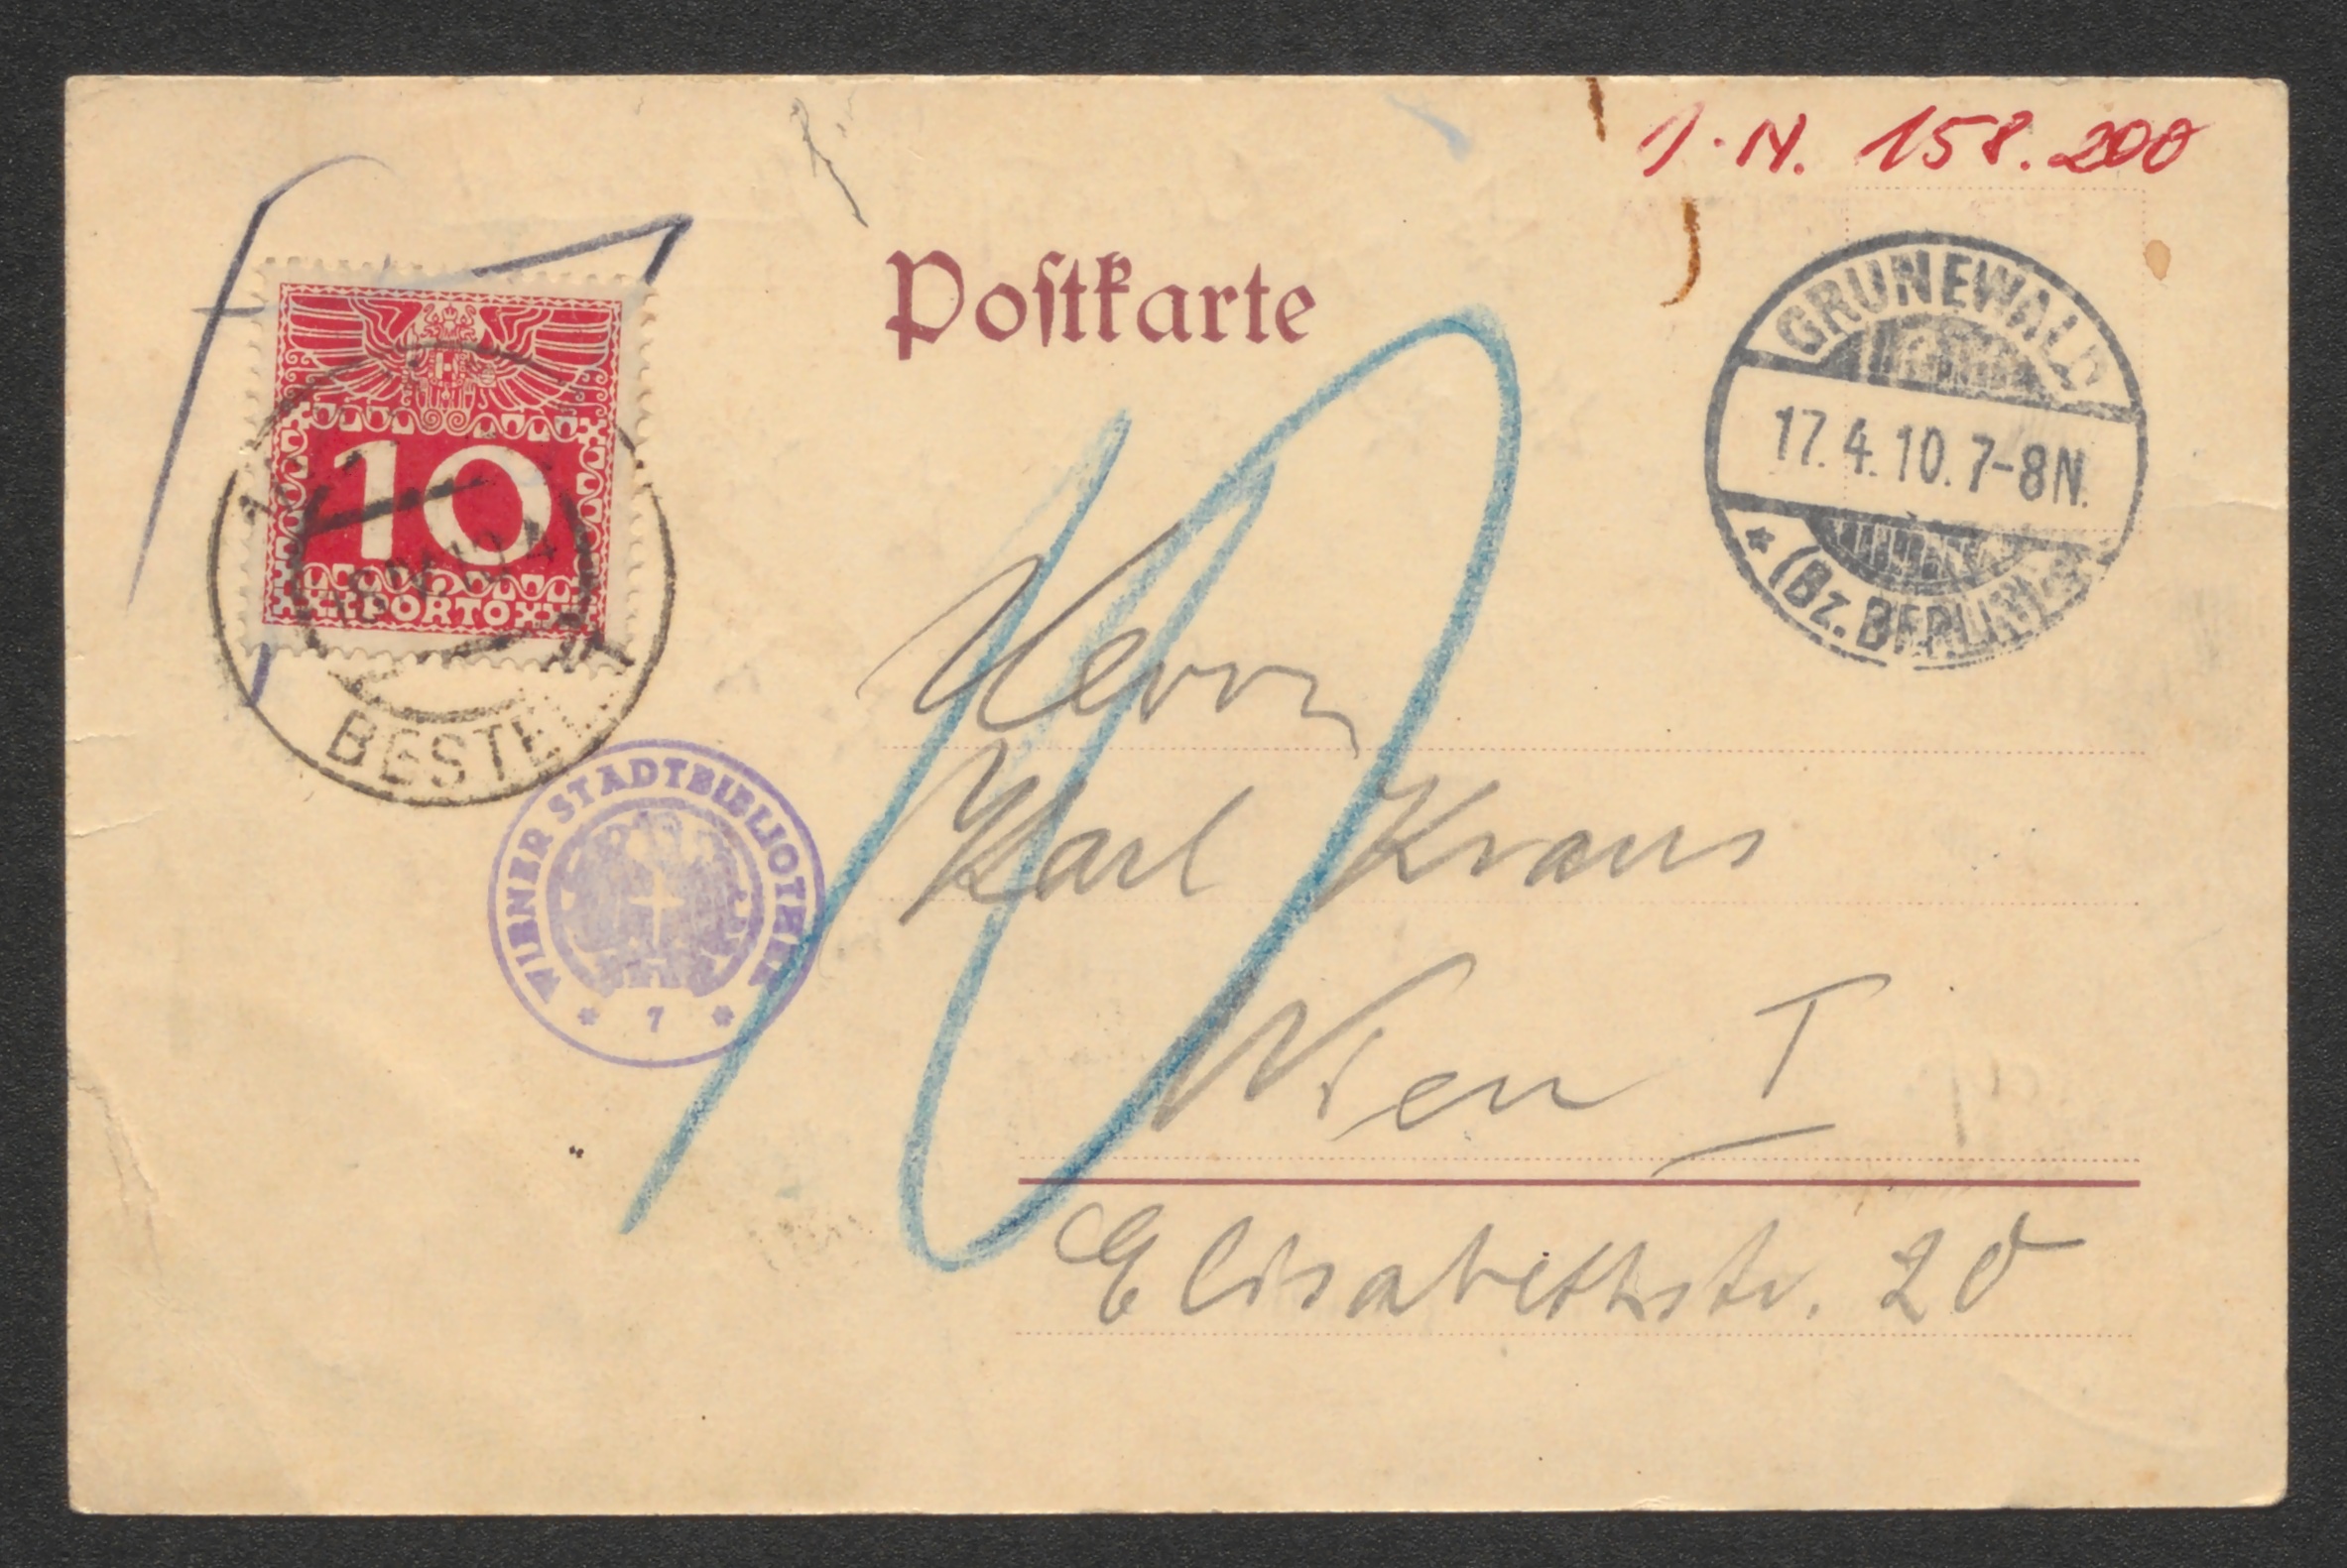 J. N. 158.200
Postkarte
GRUNEWALD
17.4.10.7-8N.
* (Bz. BERLIN)
10
PORTO
BESTEL
WIENER STADTBIBLIOTHEK
* 7 *
10
Herrn
Karl Kraus
Wien I
Elisabethstr. 20